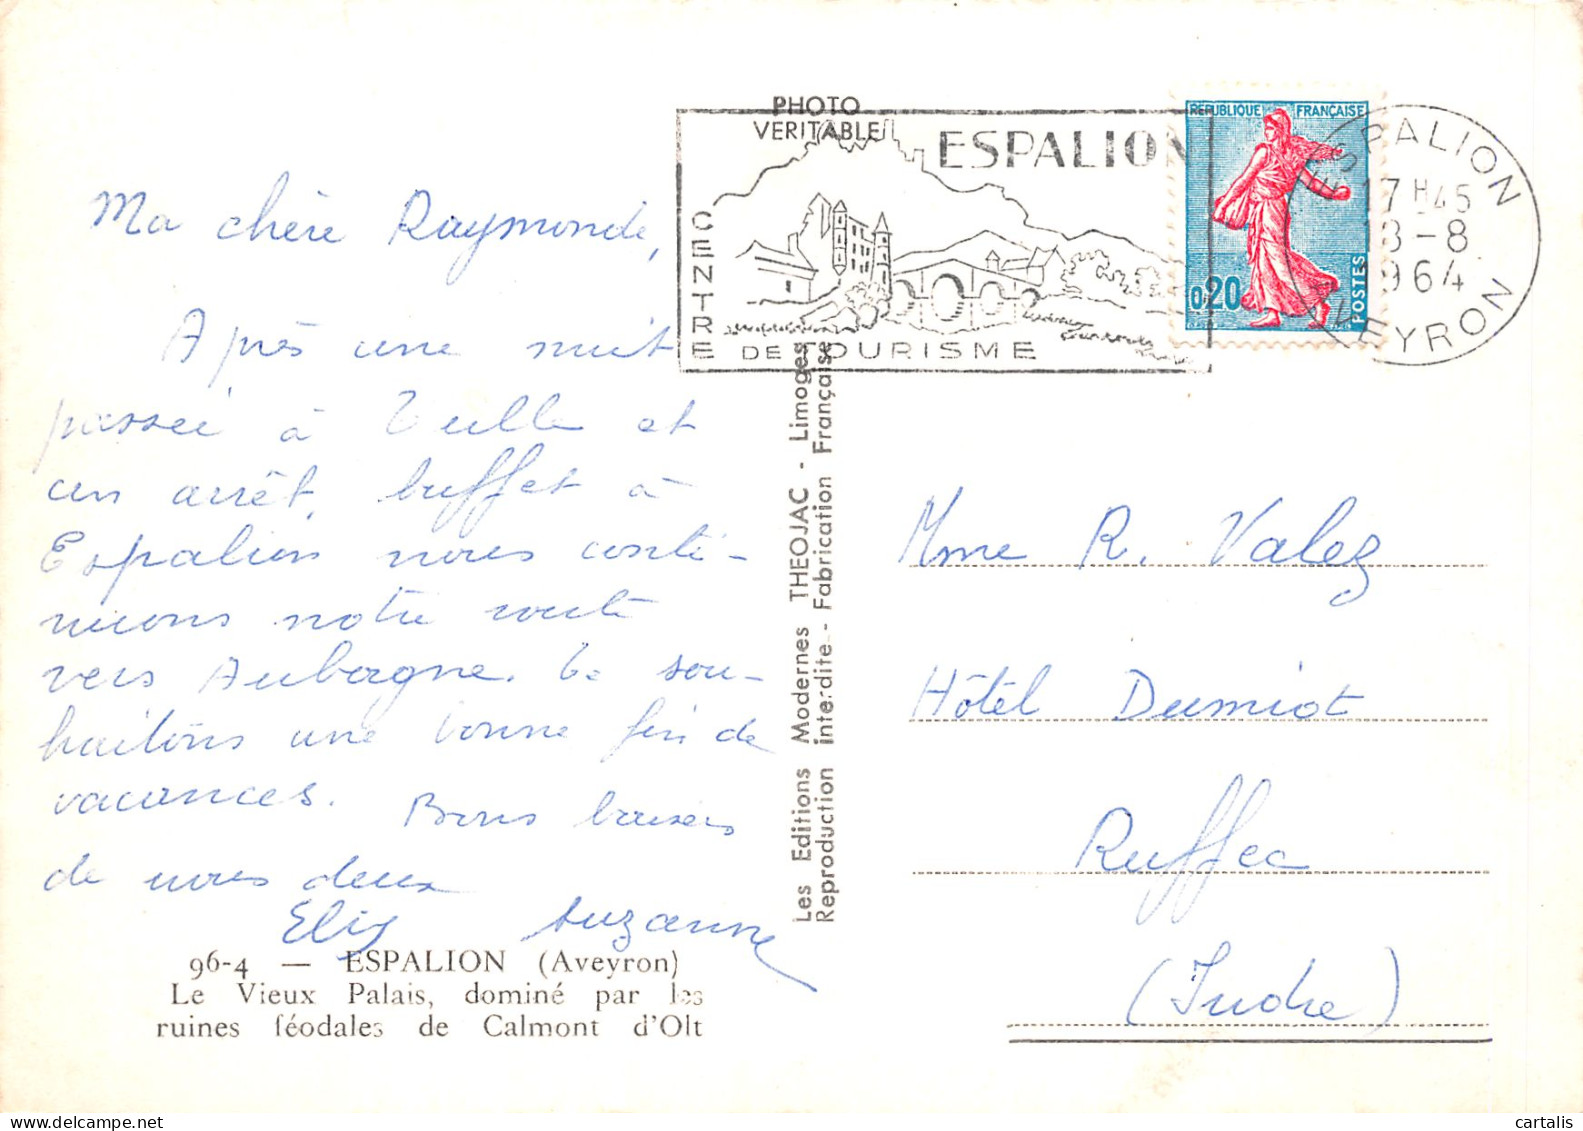 PHOTO
VERITABLE
ESPALION
CENTRE DE TOURISME
REPUBLIQUE FRANÇAISE
0,20
POSTES
ESPALION
17 H 45
8-8
1964
AVEYRON
Ma chère Raymonde,
Après une nuit
passée à Tulle et
un arrêt, buffet à
Espalion nous conti-
nuons notre route
vers Aubagne. Te sou-
haitons une bonne fin de
vacances. Bons baisers
de nous deux
Elis Suzanne
96-4 — ESPALION (Aveyron)
Le Vieux Palais, dominé par les
ruines féodales de Calmont d'Olt
Les Editions Modernes THEOJAC - Limoges
Reproduction interdite - Fabrication Française
Mme R. Valez
Hôtel Dumiot
Ruffec
(Indre)
cartalis